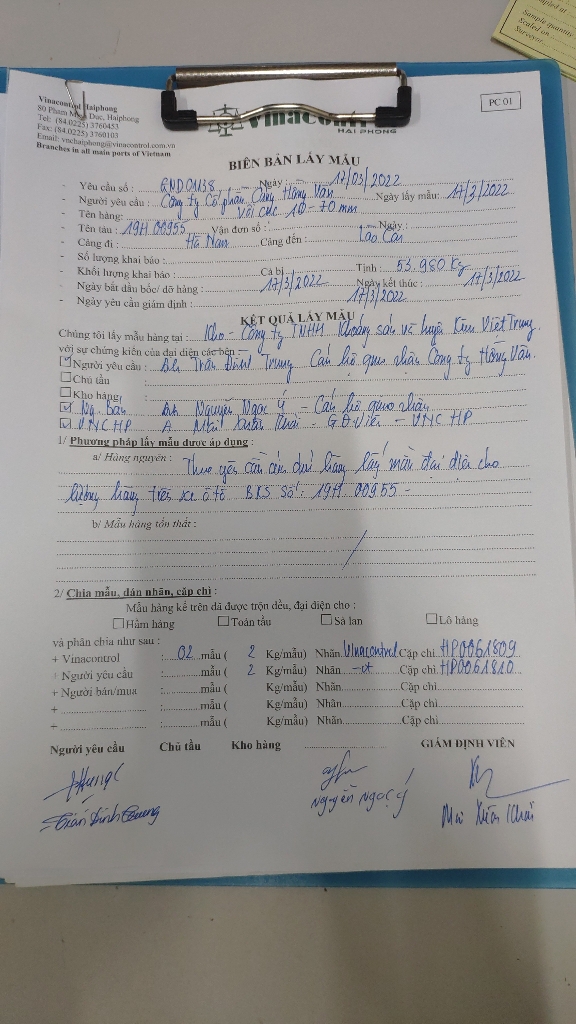 Sample quantity
Sealed on
Surveyor
Vinacontrol Haiphong
80 Pham Minh Duc, Haiphong
Tel: (84.0225) 3760453
Fax: (84.0225) 3760103
Email: vnchaiphong@vinacontrol.com.vn
Branches in all main ports of Vietnam
Vinacontrol
HAI PHONG
PC 01
BIÊN BẢN LẤY MẪU
- Yêu cầu số : Ngày : 17/03/2022
- Người yêu cầu : Công ty Cổ phần Cảng Hồng Vân Ngày lấy mẫu: 17/3/2022
- Tên hàng: Vôi cục 10-70 mm
- Tên tàu : 19H 00955 Vận đơn số : Ngày :
- Cảng đi : Hà Nam Cảng đến : Lào Cai
- Số lượng khai báo :
- Khối lượng khai báo : Cả bì Tịnh : 53.980 Kg
- Ngày bắt đầu bốc/ dỡ hàng : 17/3/2022 Ngày kết thúc : 17/3/2022
- Ngày yêu cầu giám định : 17/3/2022
KẾT QUẢ LẤY MẪU
Chúng tôi lấy mẫu hàng tại : Kho - Công ty TNHH Khoáng sản và luyện Kim Việt Trung.
với sự chứng kiến của đại diện các bên :
Người yêu cầu : Trần Đình Trung Cán bộ giao nhận Công ty Hồng Vân.
Chủ tầu :
Kho hàng :
Ng. Bán Anh Nguyễn Ngọc Ý - Cán bộ giao nhận
VNC HP A. Mai Xuân Khải - GĐ Viên - VNC HP
1/ Phương pháp lấy mẫu được áp dụng :
a/ Hàng nguyên : Theo yêu cầu của chủ hàng lấy mẫu đại diện cho
lượng hàng trên xe ô tô BKS Số: 19H 00955 -
b/ Mẫu hàng tổn thất :
2/ Chia mẫu, dán nhãn, cặp chì :
Mẫu hàng kể trên đã được trộn đều, đại diện cho :
Hầm hàng Toàn tầu Sà lan Lô hàng
và phân chia như sau :
+ Vinacontrol : 02 mẫu ( 2 Kg/mẫu) Nhãn Vinacontrol Cặp chì HP0061809
+ Người yêu cầu : mẫu ( 2 Kg/mẫu) Nhãn Cặp chì HP0061810
+ Người bán/mua : mẫu ( Kg/mẫu) Nhãn Cặp chì
+ : mẫu ( Kg/mẫu) Nhãn Cặp chì
+ : mẫu ( Kg/mẫu) Nhãn Cặp chì
Người yêu cầu Chủ tầu Kho hàng GIÁM ĐỊNH VIÊN
Nguyễn Ngọc Ý
Mai Xuân Khải